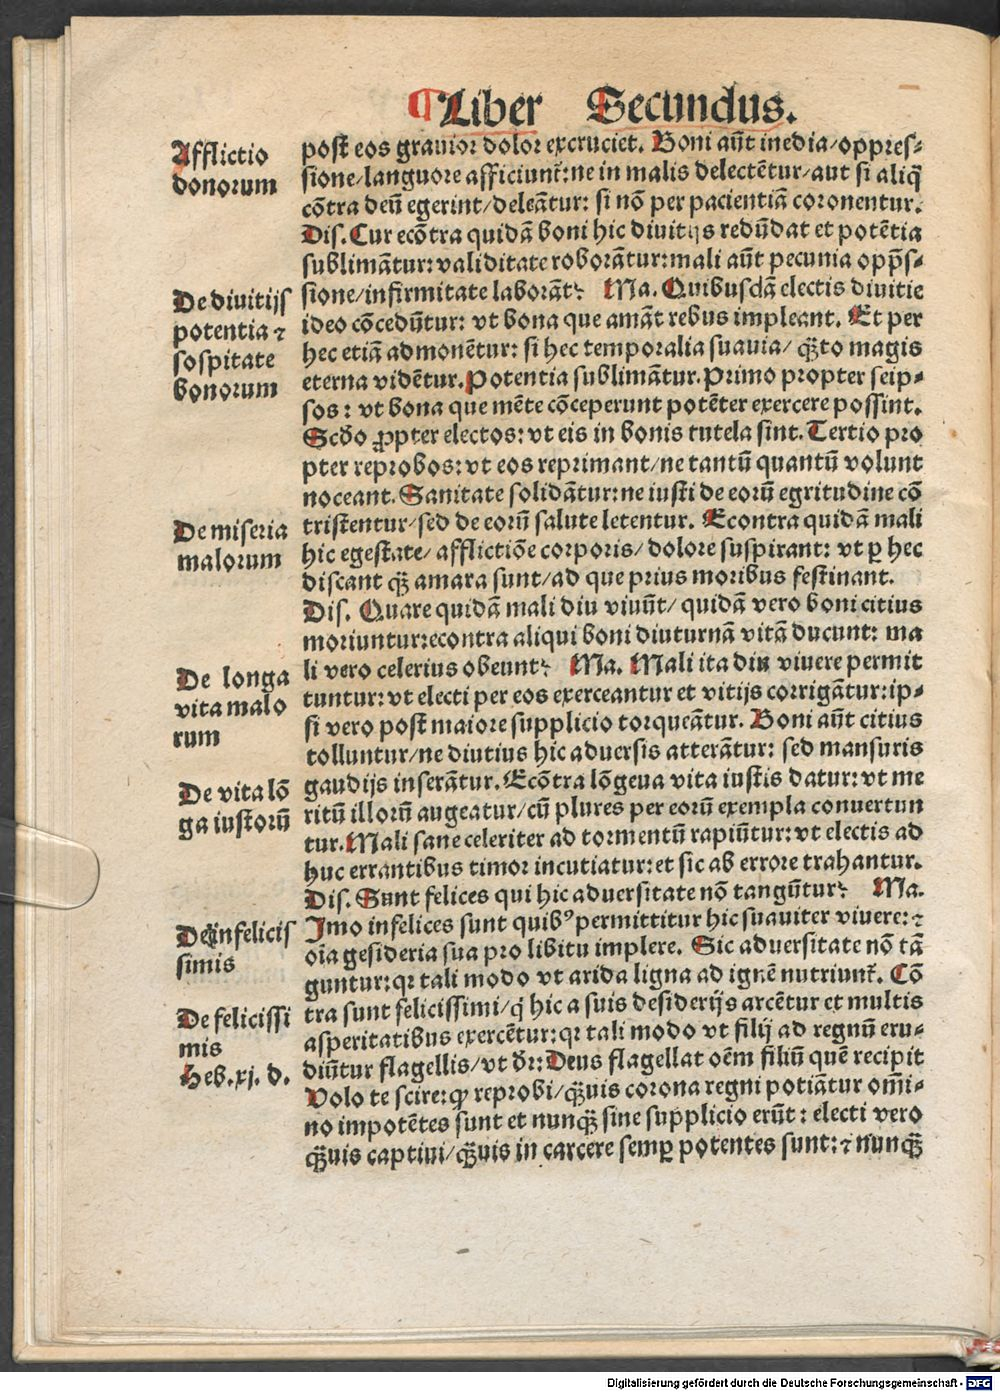 ¶ Liber Secundus.
Afflictio
donorum
post eos grauior dolor excruciet. Boni aūt inedia/oppres⸗
sione/languore afficiunt᷑:ne in malis delectētur/aut si aliq̄
cōtra deū egerint/deleātur: si nō per pacientiā coronentur.
Dis. Cur ecōtra quidā boni hic diuitijs redūdat et potētia
sublimātur:validitate roborātur:mali aūt pecunia opp̄s⸗
De diuitijs
potentia ⁊
sospitate
bonorum
sione/infirmitate laborāt? Ma. Quibusdā electis diuitie
ideo cōcedūtur: vt bona que amāt rebus impleant. Et per
hec etiā admonētur: si hec temporalia suauia/ q̄ȝto magis
eterna vidētur. Potentia sublimātur. Primo propter seip⸗
sos: vt bona que mēte cōceperunt potēter exercere possint.
Scd̄o ꝓpter electos: vt eis in bonis tutela sint. Tertio pro
pter reprobos: vt eos reprimant/ne tantū quantū volunt
noceant. Sanitate solidātur:ne iusti de eorū egritudine cō
De miseria
malorum
tristentur/sed de eorū salute letentur. Econtra quidā mali
hic egestate/ afflictiōe corporis/ dolore suspirant: vt ꝑ hec
discant q̄ȝ amara sunt/ad que prius moribus festinant.
Dis. Quare quidā mali diu viuūt/ quidā vero boni citius
moriuntur:econtra aliqui boni diuturnā vitā ducunt: ma
De longa
vita malo
rum
li vero celerius obeunt? Ma. Mali ita diu viuere permit
tuntur: vt electi per eos exerceantur et vitijs corrigātur:ip⸗
si vero post maiore supplicio torqueātur. Boni aūt citius
tolluntur/ne diutius hic aduersis atterātur: sed mansuris
De vita lō
ga iustorū
gaudijs inserātur. Ecōtra lōgeua vita iustis datur: vt me
ritū illorū augeatur/cū plures per eorū exempla conuertun
tur. Mali sane celeriter ad tormentū rapiūtur: vt electis ad
huc errantibus timor incutiatur: et sic ab errore trahantur.
Dis. Sunt felices qui hic aduersitate nō tangūtur? Ma.
De infelicis
simis
Imo infelices sunt quibꝰ permittitur hic suauiter viuere: ⁊
oīa gesideria sua pro libitu implere. Sic aduersitate nō tā
guntur: qꝛ tali modo vt arida ligna ad ignē nutriunt᷑. Cō
De felicissi
mis
Heb. xj. d.
tra sunt felicissimi/q̇ hic a suis desiderijs arcētur et multis
asperitatibus exercētur: qꝛ tali modo vt filij ad regnū eru⸗
diūtur flagellis/vt dr̄: Deus flagellat oēm filiū quē recipit
Volo te scire: ꝙ reprobi/q̄ȝuis corona regni potiātur om̄i⸗
no impotētes sunt et nunq̄ȝ sine supplicio erūt: electi vero
q̄ȝuis captiui/q̄ȝuis in carcere semꝑ potentes sunt: ⁊ nunq̄ȝ
Digitalisierung gefördert durch die Deutsche Forschungsgemeinschaft - DFG